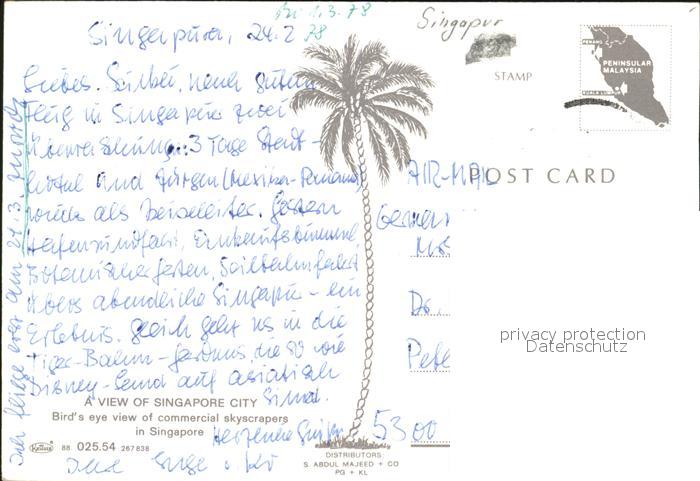 Bi 1.3.78
Singapur
Singapura, 24.2 78
STAMP
PENANG
PENINSULAR
MALAYSIA
KUALA LUMPUR
POST CARD
AIR-MAIL
Liebes. nach gutem
Flug in Singapur zwei
Überraschung: 3 Tage Stadt-
hotel und Jürgen (Mexiko-Panama)
noch als Reiseleiter. Gestern
Hafenrundfahrt, Einkaufsbummel,
Botanischer Garten, Seilbahnfahrt
übers abendliche Singapur - ein
Erlebnis. Gleich geht es in die
Tiger-Balm-Gardens, die so wie
Disney-Land auf asiatisch
sind.
Herzliche Grüße
Ihre
Ich fliege erst am 21.3. zurück
German
Dr.
Pete
5300
privacy protection
Datenschutz
A VIEW OF SINGAPORE CITY
Bird's eye view of commercial skyscrapers
in Singapore
88 025.54 267838
DISTRIBUTORS
S. ABDUL MAJEED + CO
PG + KL